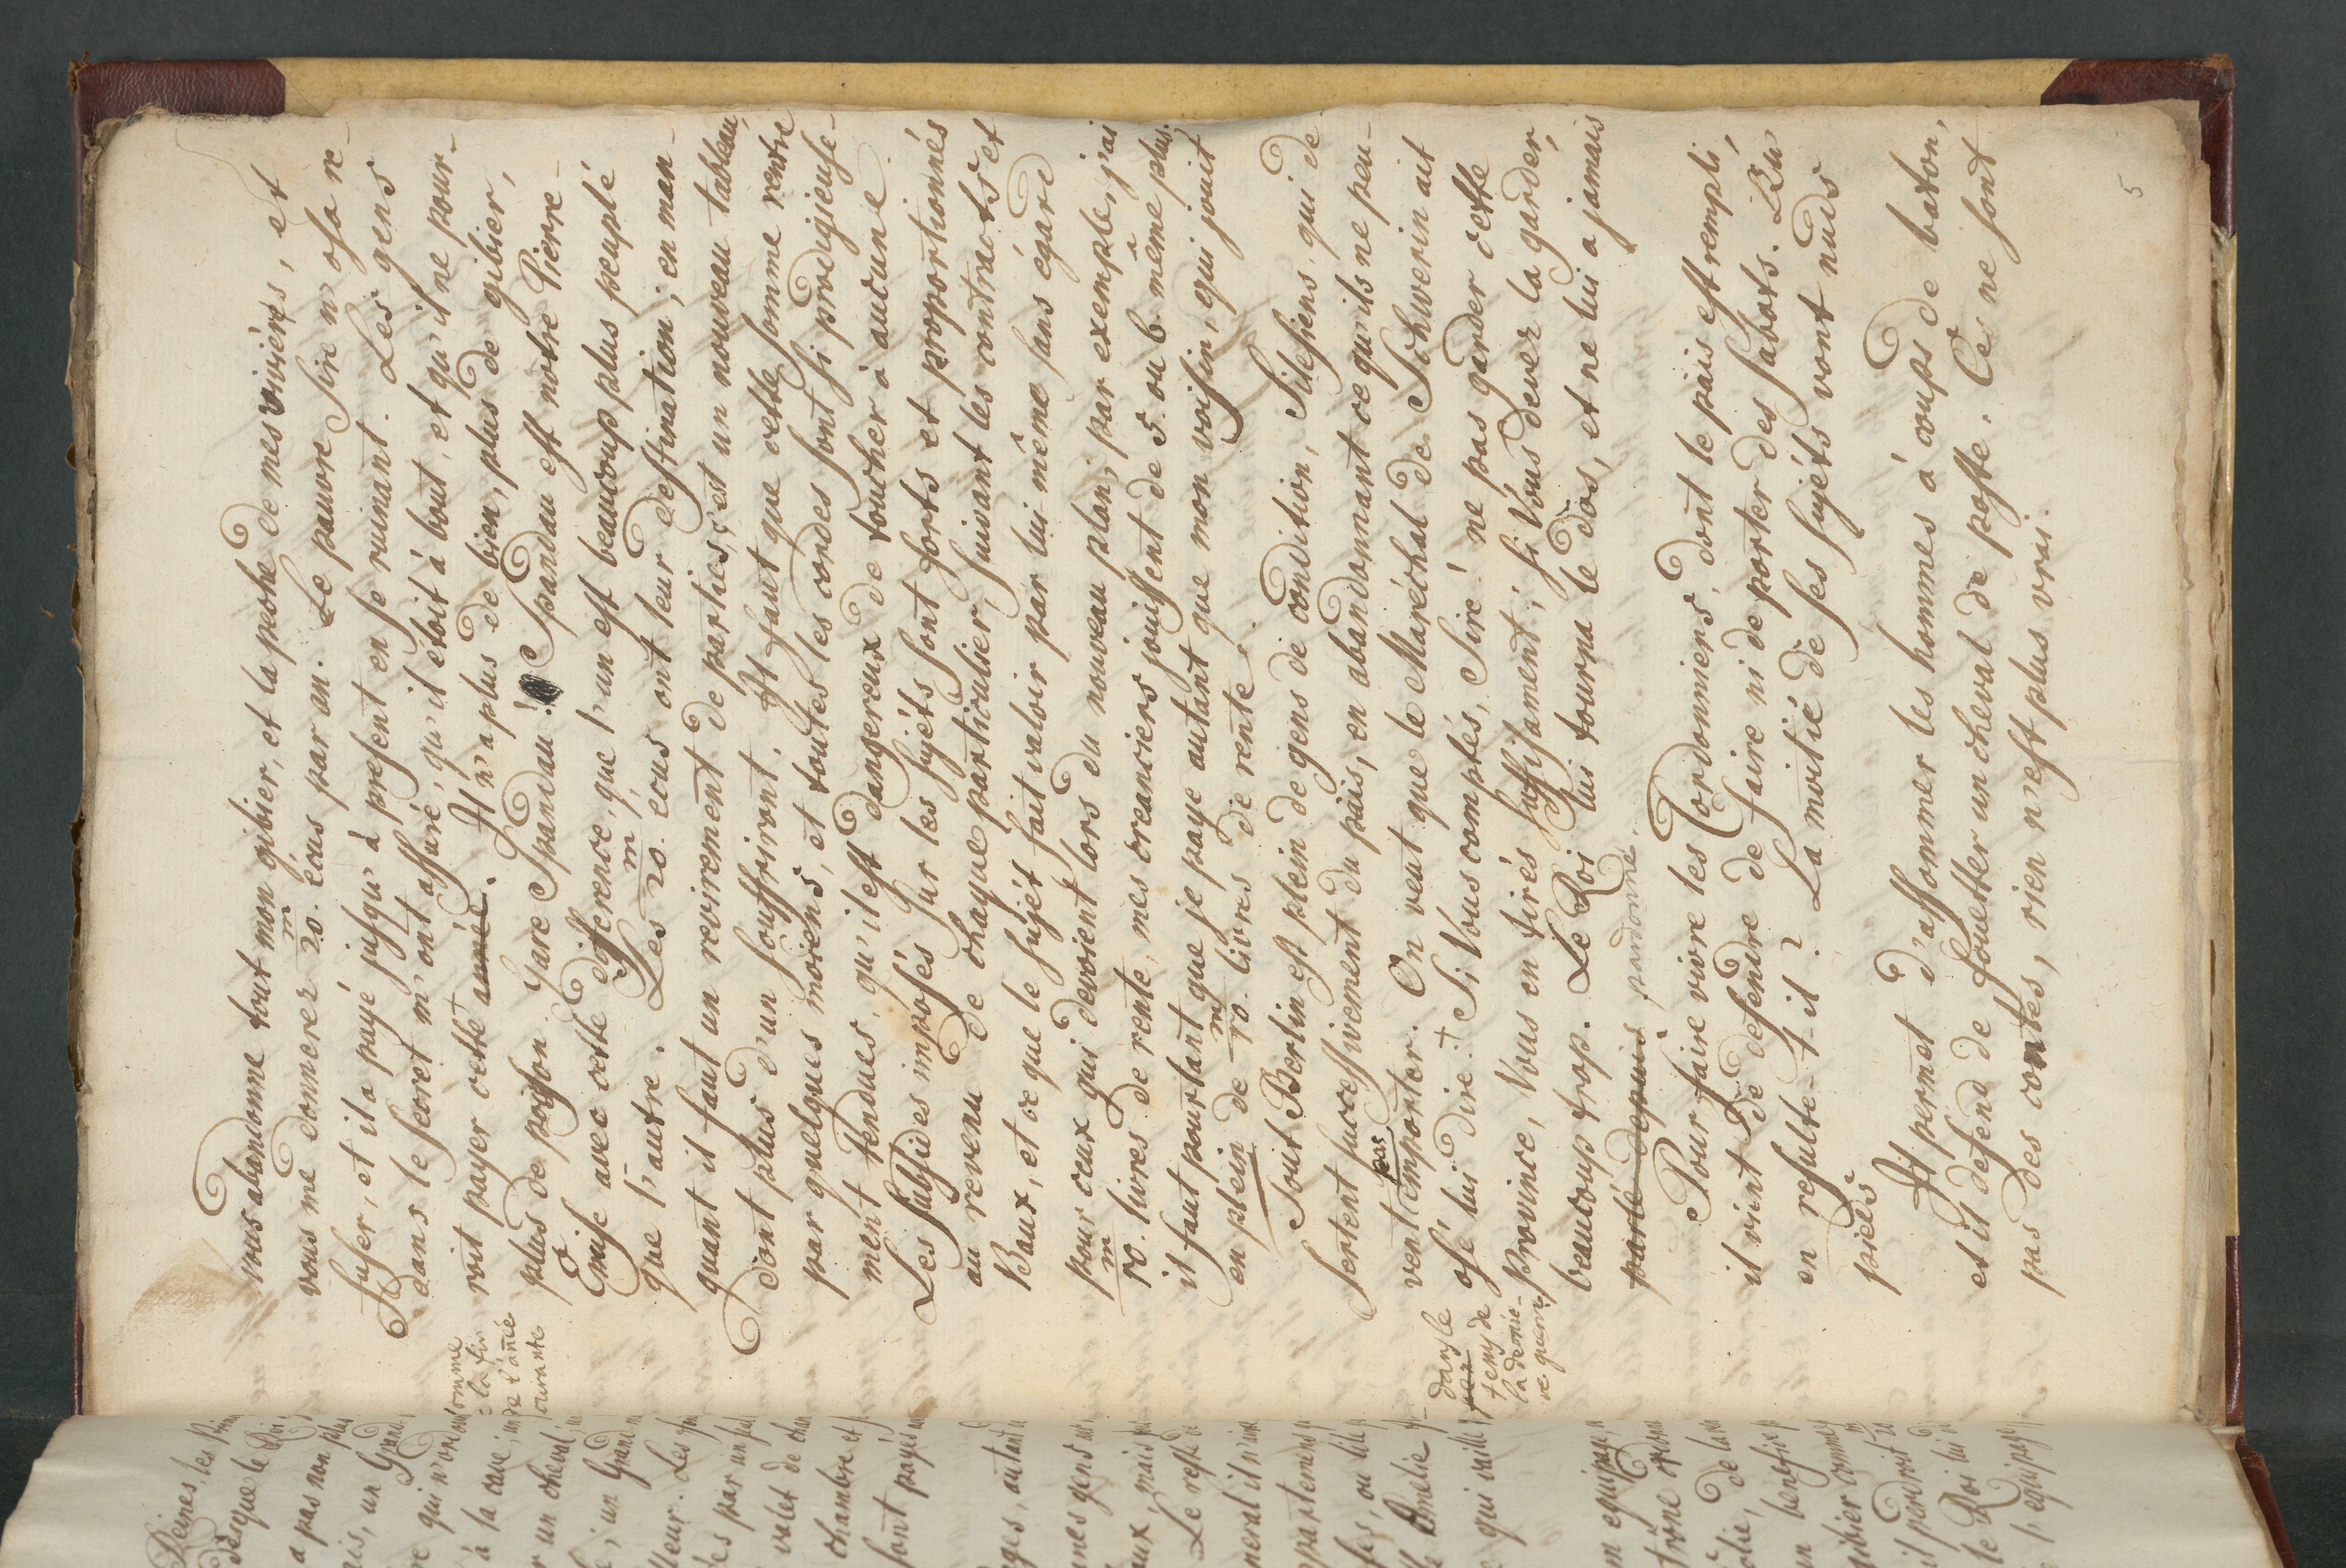 vous abandonne tout mon gibier, et la peche de mes rivieres, et
vous me donnerez 20.m écus par an. Le pauvre Sire n'osa re-
fuser, et il a payé jusqu'à present en se ruinant. Les gens
dans le secret m'ont assuré, qu'il étoit à bout, et qu'il ne pour-
roit payer cette + année. Il n'a plus de bien, plus de gibier,
plus de poisson. Gare Spandau! Spandau est notre Pierre-
Encise avec cette difference, que l'un est beaucoup plus peuplé
que l'autre. Les 20.m écus ont leur destination; en man-
quant il faut un revirement de parties, c'est un nouveau tableau,
dont plus d'un souffriront. Il faut que cette somme rentre
par quelques moiens, et toutes les cordes sont si prodigieuse-
ment tendues, qu'il est dangereux de toucher à aucune.
Les subsides imposés sur les sujéts sont forts et proportionnés
au revenu de chaque particulier, suivant les contracts et
Baux, et ce que le sujét fait valoir par lui même sans égard
pour ceux qui devroient lors du nouveau plan; par exemple, j'ai
10.m livres de rente, mes creanciers jouissent de 5. ou 6. même plus.
il faut pourtant que je paye autant que mon voisin, qui jouit
en plein de 10.m livres de rente.
Tout Berlin est plein de gens de condition, Silesiens, qui de-
sertent successivement du païs, en abandonnant ce qu'ils ne peu-
vent pas emporter. On veut que le Maréchal de Schwerin ait
osé lui dire + Si Vous comptés, Sire! ne pas garder cette
province, Vous en tirés suffisament; si Vous devez la garder,
beaucoup trop. Le Roi lui tourna le dos, et ne lui a jamais
parlé depuis pardonné.
Pour faire vivre les Cordonniers, dont le païs est rempli,
il vient de defendre de faire ni de porter des sabots. Qu'
en resulte-t-il? La moitié de ses sujéts vont nuds
pieds
Il permet d'assommer les hommes à coups de baton,
et il defend de fouetter un cheval de poste. Ces ne sont
pas des contes, rien n'est plus vrai.
5
comme
a la fin
de l'année
courante
dans le
temps de
la derniè-
re guerre